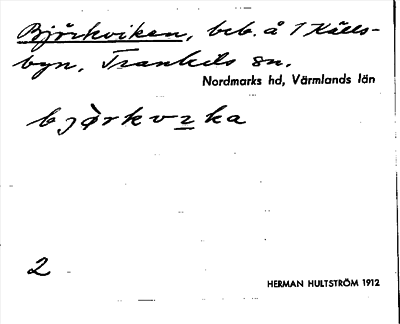 Björkviken, beb. å 1 Källs-
byn, Trankils sn.
Nordmarks hd, Värmlands län
bjòrkvıka
2
HERMAN HULTSTRÖM 1912